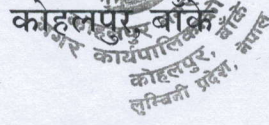 कोहलपुर, बाँके
नगर कार्यपालिका
कोहलपुर, बाँके
लुम्बिनी प्रदेश, नेपाल